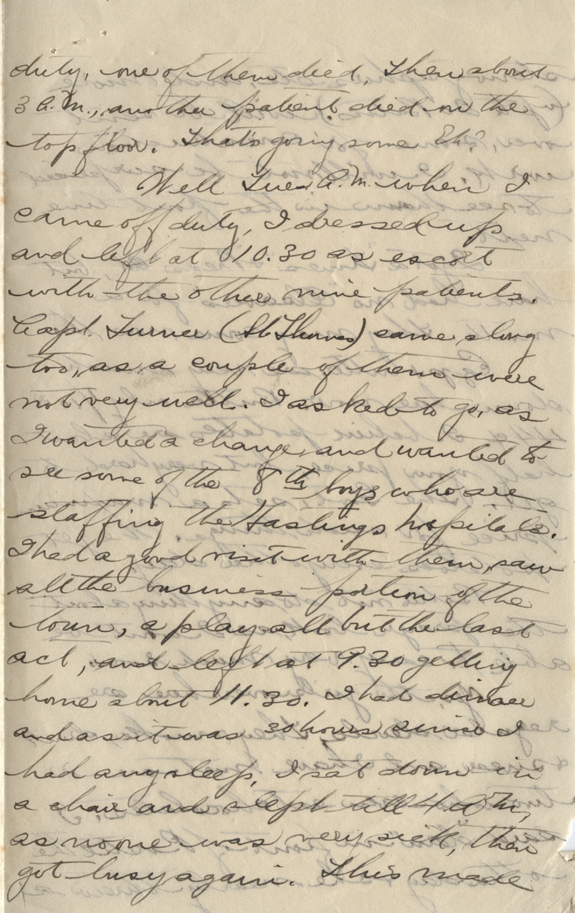 duty, one of them died. Then about
3 A.M., another patient died on the
top floor. That's going some Eh?
Well Tues A.M. when I
came off duty, I dressed up
and left at 10.30 as escort
with the other nine patients.
Capt. Turner (St Thomas) came along
too, as a couple of them were
not very well. I asked to go, as
I wanted a change, and wanted to
see some of the 8th boys who are
staffing the Hastings hospitals.
I had a good visit with them, saw
all the business portion of the
town, a play all but the last
act, and left at 9.30 getting
home about 11.30. I had dinner
and as it was 30 hours since I
had any sleep, I sat down in
a chair and slept till 4 a.m.,
as no one was very sick, then
got busy again. This made